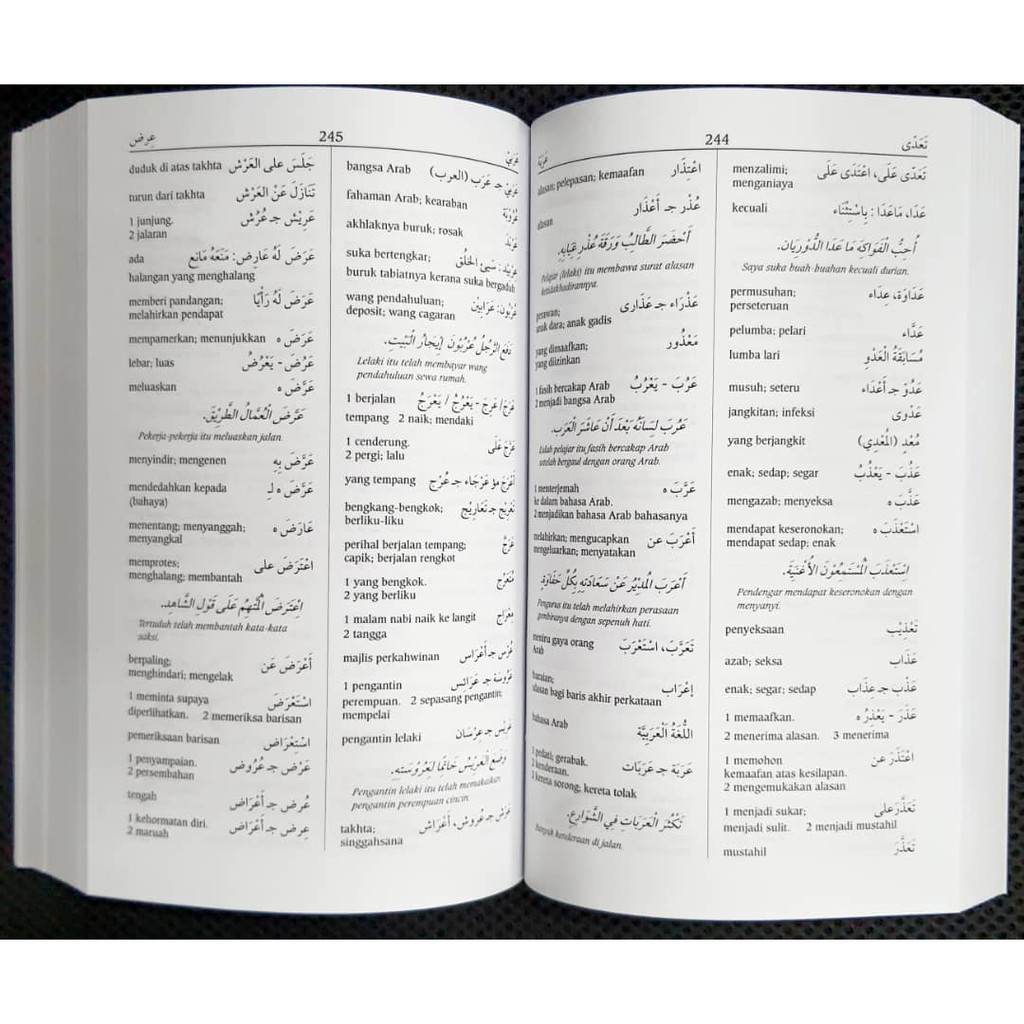 244
تَعَدَّى
عَرَبَة
menzalimi; تَعَدَّى عَلَى، اعْتَدَى عَلَى
menganiaya
kecuali عَدَا، مَاعَدَا : بِاسْتِثْنَاء
أُحِبُّ الْفَوَاكِهَ مَا عَدَا الدُّورِيَان.
Saya suka buah-buahan kecuali durian.
permusuhan; عَدَاوَة، عِدَاء
perseteruan
pelumba; pelari عَدَّاء
lumba lari مُسَابَقَةُ الْعَدْوِ
musuh; seteru عَدُوّ جـ أَعْدَاء
jangkitan; infeksi عَدْوَى
yang berjangkit مُعْدٍ (المُعْدِي)
enak; sedap; segar عَذُبَ - يَعْذُبُ
mengazab; menyeksa عَذَّبَ ه
mendapat keseronokan; اسْتَعْذَبَ ه
mendapat sedap; enak
اِسْتَعْذَبَ الْمُسْتَمِعُونَ الأُغْنِيَةَ.
Pendengar mendapat keseronokan dengan
menyanyi.
penyeksaan تَعْذِيْب
azab; seksa عَذَاب
enak; segar; sedap عَذْب جـ عِذَاب
1 memaafkan. عَذَرَ - يَعْذِرُ ه
2 menerima alasan. 3 menerima
1 memohon اعْتَذَرَ عَن
kemaafan atas kesilapan.
2 mengemukakan alasan
1 menjadi sukar; تَعَذَّرَ على
menjadi sulit. 2 menjadi mustahil
mustahil تَعَذَّرَ
alasan; pelepasan; kemaafan اعْتِذَار
alasan عُذْر جـ أَعْذَار
أَحْضَرَ الطَّالِبُ وَرَقَةَ عُذْرِ غِيَابِهِ.
Pelajar (lelaki) itu membawa surat alasan
ketidakhadirannya.
perawan; عَذْرَاء جـ عَذَارَى
anak dara; anak gadis
yang dimaafkan; مَعْذُوْر
yang diizinkan
1 fasih bercakap Arab عَرُبَ - يَعْرُبُ
2 menjadi bangsa Arab
عَرُبَ لِسَانُهُ بَعْدَ أَنْ عَاشَرَ الْعَرَب.
Lidah pelajar itu fasih bercakap Arab
setelah bergaul dengan orang Arab.
1 menterjemah عَرَّبَ ه
ke dalam bahasa Arab.
2 menjadikan bahasa Arab bahasanya
melahirkan; mengucapkan أَعْرَبَ عن
mengeluarkan; menyatakan
أَعْرَبَ الْمُدِيْرُ عَنْ سَعَادَتِهِ بِكُلِّ حَفَاوَة.
Pengurus itu telah melahirkan perasaan
gembiranya dengan sepenuh hati.
meniru gaya orang تَعَرَّبَ، اسْتَعْرَبَ
Arab
huraian; إعْرَاب
ulasan bagi baris akhir perkataan
bahasa Arab اللُّغَةُ الْعَرَبِيَّة
1 pedati; gerabak. عَرَبَة جـ عَرَبَات
2 kenderaan.
3 kereta sorong; kereta tolak
تَكْثُرُ الْعَرَبَات فِي الشَّوَارِعِ.
Banyak kenderaan di jalan.
245
عَرَبِيّ
عِرض
bangsa Arab عَرَبِيّ جـ عَرَب (العرب)
fahaman Arab; kearaban عُرُوْبَة
akhlaknya buruk; rosak عَرْبَدَ
suka bertengkar; عِرْبِيْد : سَيِّئُ الخُلُق
buruk tabiatnya kerana suka bergaduh
wang pendahuluan; عُرْبُوْن: عَرَابِيْن
deposit; wang cagaran
دَفَعَ الرَّجُلُ عُرْبُونَ إِيجَارُ الْبَيْتِ.
Lelaki itu telah membayar wang
pendahuluan sewa rumah.
1 berjalan عَرَجَ/عَرِجَ - يَعْرُجُ / يَعْرَجُ
tempang 2 naik; mendaki
1 cenderung. عَرَّجَ عَلَى
2 pergi; lalu
yang tempang أَعْرَج مؤ عَرْجَاء جـ عُرْج
bengkang-bengkok; تَعْرِيْج جـ تَعَارِيْج
berliku-liku
perihal berjalan tempang; عَرَج
capik; berjalan rengkot
1 yang bengkok. مُتَعَرِّج
2 yang berliku
1 malam nabi naik ke langit مِعْرَاج
2 tangga
majlis perkahwinan عُرْس جـ أَعْرَاس
1 pengantin عَرُوْسَة جـ عَرَائِس
perempuan. 2 sepasang pengantin;
mempelai
pengantin lelaki عَرِيْس جـ عرْسَان
وَضَعَ الْعَرِيْسُ خَاتَمًا لِعَرُوْسَتِهِ.
Pengantin lelaki itu telah memakaikan
pengantin perempuan cincin.
takhta; عَرْش جـ عروش، أعْرَاش
singgahsana
duduk di atas takhta جَلَسَ على العَرْش
turun dari takhta تَنَازَلَ عَنْ الْعَرْش
1 junjung. عَرِيْش جـ عُرُش
2 jalaran
ada عَرَضَ لَهُ عَارِض: مَنَعَهُ مَانِع
halangan yang menghalang
memberi pandangan; عَرَضَ لَهُ رَأْيًا
melahirkan pendapat
mempamerkan; menunjukkan عَرَضَ ه
lebar; luas عَرُضَ - يَعْرُضُ
meluaskan عَرَّضَ ه
عَرَّضَ الْعُمَّالُ الطَّرِيْقَ.
Pekerja-pekerja itu meluaskan jalan.
menyindir; mengenen عَرَّضَ بِهِ
mendedahkan kepada عَرَّضَ ه لـِ
(bahaya)
menentang; menyanggah; عَارَضَ ه
menyangkal
memprotes; اعْتَرَضَ على
menghalang; membantah
اِعْتَرَضَ الْمُتَّهَمُ عَلَى قَوْلِ الشَّاهِدِ.
Tertuduh telah membantah kata-kata
saksi.
berpaling; أَعْرَضَ عَن
menghindari; mengelak
1 meminta supaya اسْتَعْرَضَ
diperlihatkan. 2 memeriksa barisan
pemeriksaan barisan اسْتِعْرَاض
1 penyampaian. عَرْض جـ عُرُوض
2 persembahan
tengah عُرض جـ أَعْرَاض
1 kehormatan diri. عِرض جـ أَعْرَاض
2 maruah